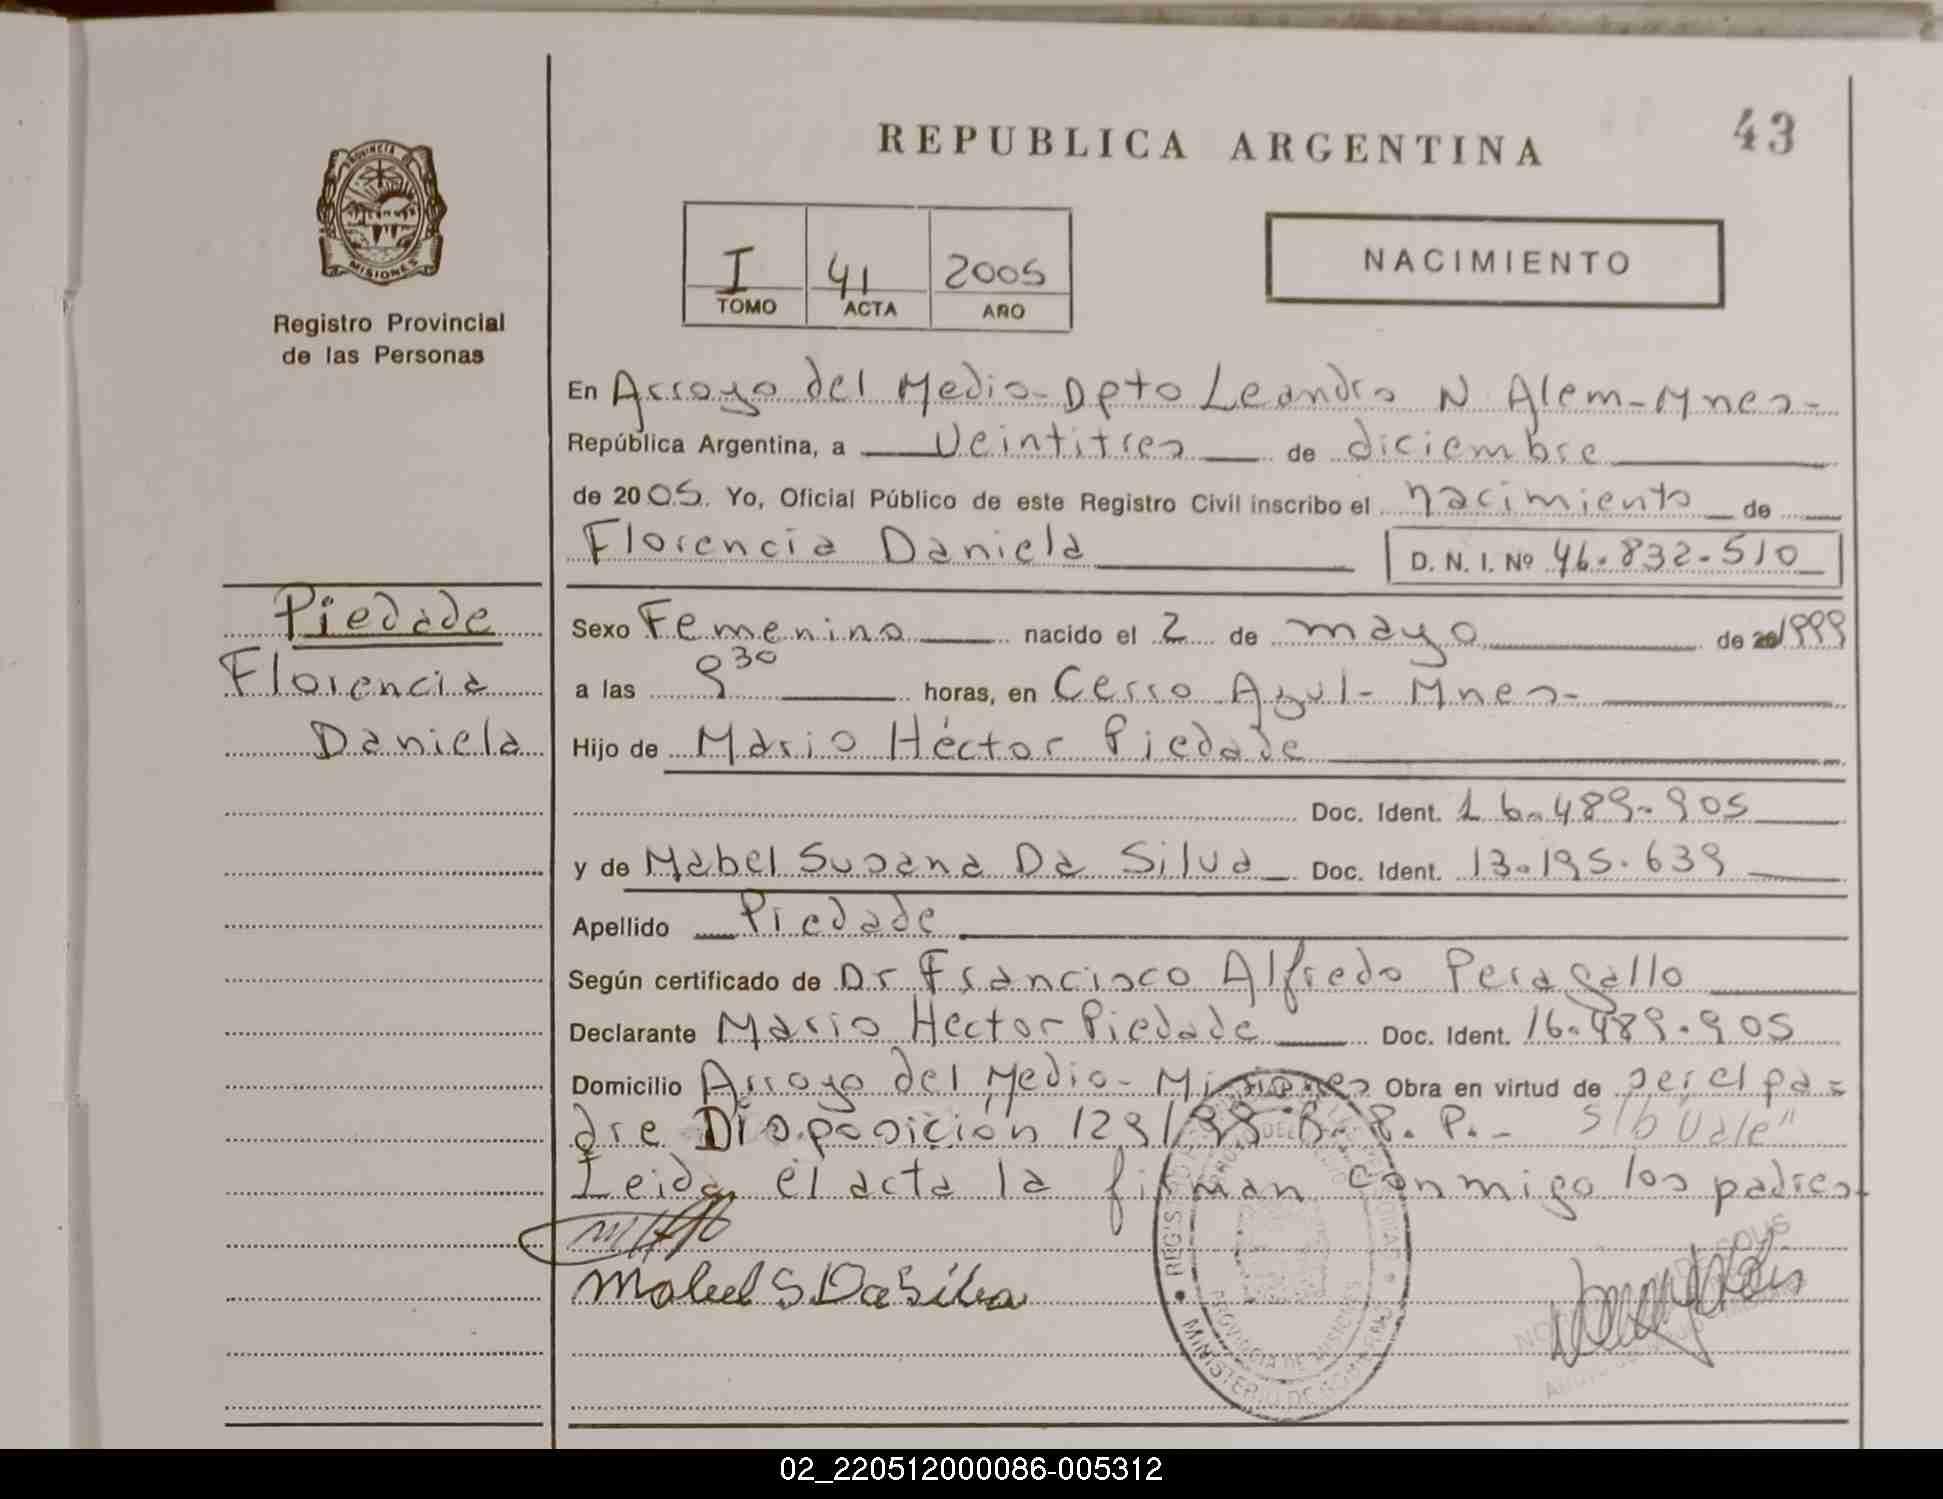 REPUBLICA ARGENTINA
43
PROVINCIA DE
MISIONES
Registro Provincial
de las Personas
I 41 2005
TOMO ACTA AÑO
NACIMIENTO
En Arroyo del Medio - Dpto Leandro N Alem - Mnes -
República Argentina, a veintitres de diciembre
de 2005. Yo, Oficial Público de este Registro Civil inscribo el nacimiento de
Florencia Daniela D. N. I. Nº 46.832.510
Piedade
Florencia
Daniela
Sexo Femenino nacido el 2 de mayo de 20 1999
a las 9 30 horas, en Cerro Azul - Mnes -
Hijo de Mario Héctor Piedade
Doc. Ident. 16.489.905
y de Mabel Susana Da Silva Doc. Ident. 13.195.639
Apellido Piedade
Según certificado de Dr Francisco Alfredo Peragallo
Declarante Mario Hector Piedade Doc. Ident. 16.489.905
Domicilio Arroyo del Medio - Misiones Obra en virtud de ser el pa=
dre Disposición 129/99 R. P. P. - S/b Vale"
Leida el acta la firman conmigo los padres.
Mabel S Da Silva
PROVINCIA DE MISIONES
MINISTERIO DE GOBIERNO
02_220512000086-005312